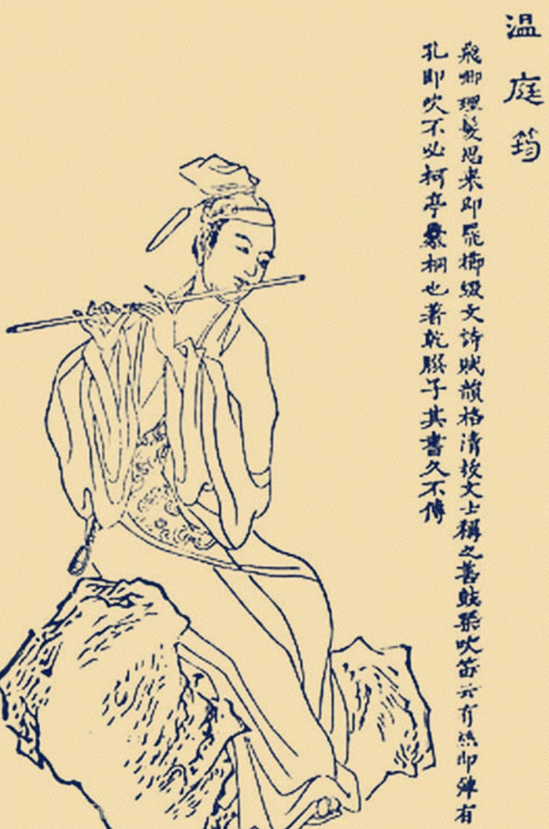 温庭筠
飛卿理髮思來即罷櫛綴文詩賦韻格清拔文士稱之善鼓琴吹笛云有絲即彈有
孔即吹不必柯亭爨桐也著乾𦠆子其書久不傳